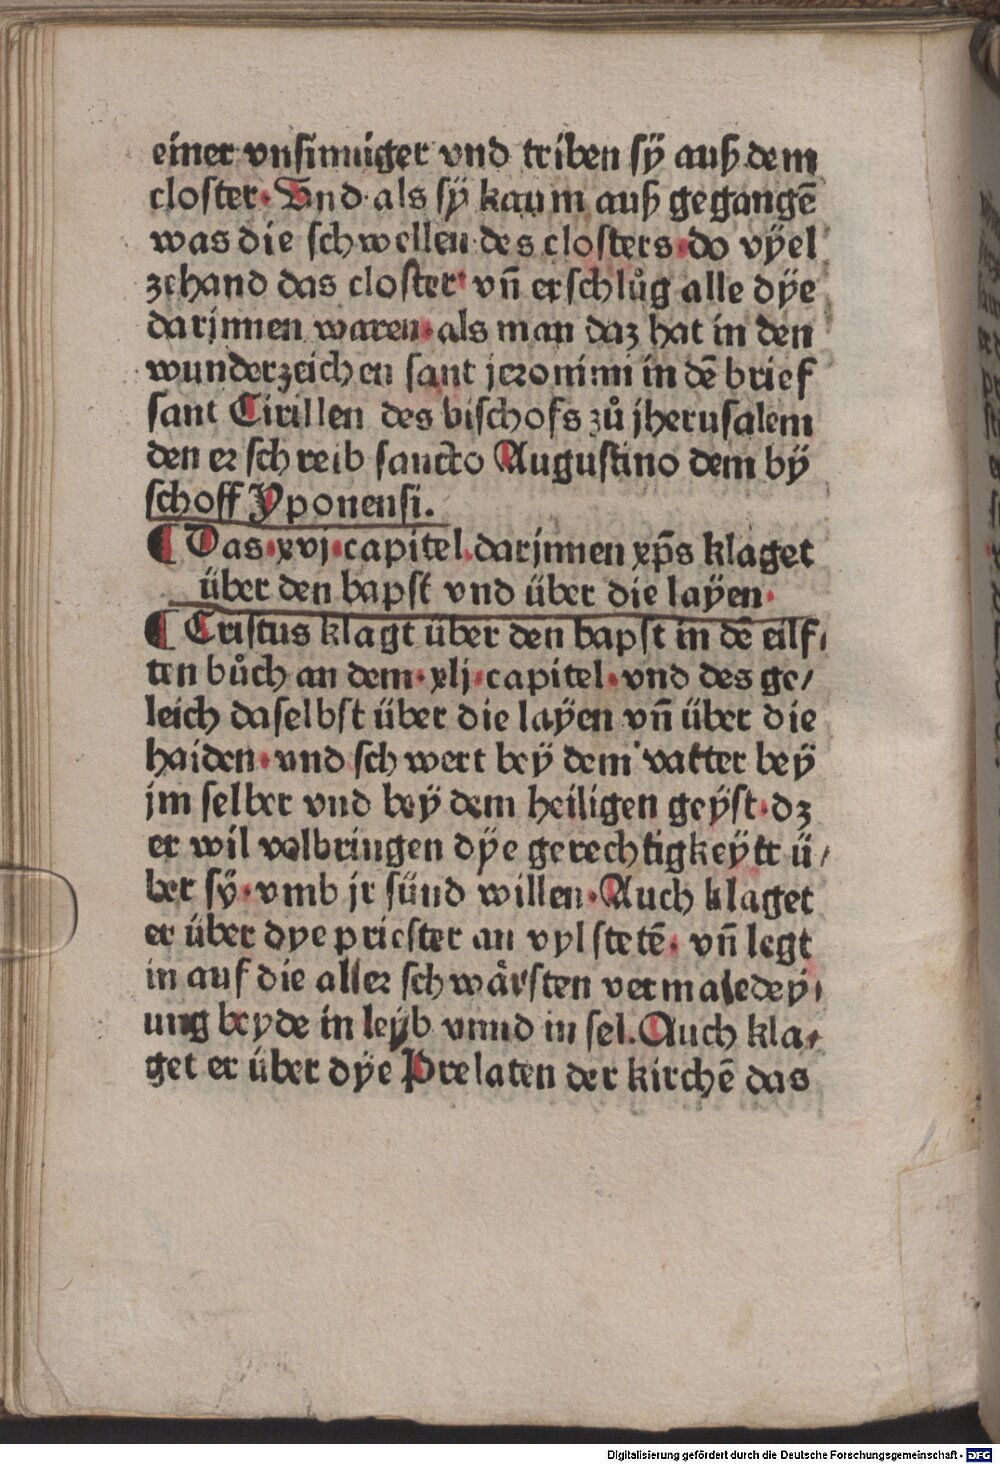 einer vnsinniger vnd triben sÿ auß dem
closter. Vnd als sÿ kaum auß gegangē
was die schwellen des closters. do vÿel
zehand das closter vn̄ erschlůg alle dÿe
darjnnen waren. als man daz hat in den
wunderzeichen sant jeronimi in dē brief
sant Cirillen des bischofs zů jherusalem
den er schreib sancto Augustino dem bÿ
schoff Yponensi.
¶ Das .xvj. capitel darjnnen xp̄s klaget
über den bapst vnd über die laÿen.
¶ Cristus klagt über den bapst in dē eilf/
ten bůch an dem .xlj. capitel. vnd des ge/
leich daselbst über die laÿen vn̄ über die
haiden. vnd schwert beÿ dem vatter beÿ
jm selber vnd beÿ dem heiligen geÿst. dz
er wil volbringen dÿe gerechtigkeÿtt ü/
ber sÿ. vmb jr sünd willen. Auch klaget
er über dye priester an vyl stetē. vn̄ legt
in auf die aller schwårsten vermaledey/
ung beyde in leÿb vnnd in sel. Auch kla/
get er über dÿe Prelaten der kirchē das
Digitalisierung gefördert durch die Deutsche Forschungsgemeinschaft - DFG